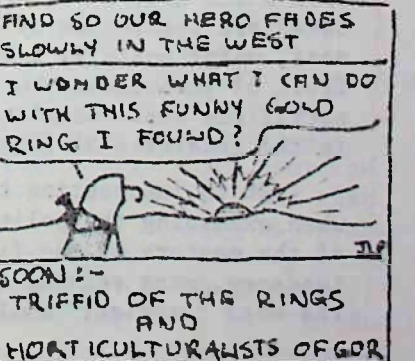 AND SO OUR HERO FADES
SLOWLY IN THE WEST
I WONDER WHAT I CAN DO
WITH THIS FUNNY GOLD
RING I FOUND?
JLP
SOON:-
TRIFFID OF THE RINGS
AND
HORTICULTURALISTS OF GOR